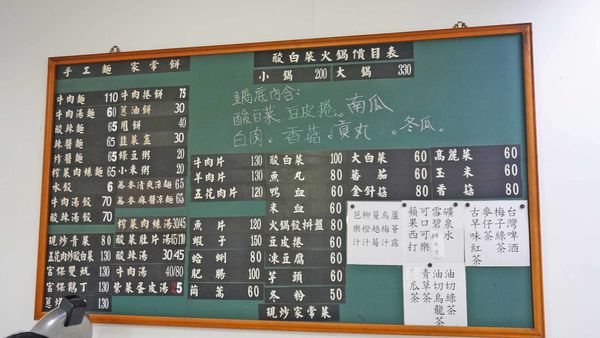 手工麵 家常餅
牛肉麵 110
牛肉湯麵 60
酸辣麵 65
辣醬麵 65
炸醬麵 65
榨菜肉絲麵 65
水餃 6
牛肉湯餃 70
酸辣湯餃 70
現炒青菜 80
五花肉炒酸白菜 130
宮保雙魷 130
宮保鷄丁 130
牛肉捲餅 75
蔥油餅 30
甩餅 40
韮菜盒 30
綠豆粥 20
小米粥 20
蕎麥清爽涼麵 65
蕎麥麻醬涼麵 65
榨菜肉絲湯 30/45
酸菜肚片湯
酸辣湯 30/45
牛肉湯 40/80
紫菜蛋皮湯
酸白菜火鍋價目表
小鍋 200 大鍋 330
鍋底內含:
酸白菜. 豆皮捲. 南瓜
白肉. 香菇. 貢丸. 冬瓜.
牛肉片 130
羊肉片 130
五花肉片 120
魚片 120
蝦子 150
蛤蜊 80
肥腸 100
茼蒿 60
酸白菜 100
魚丸 80
鴨血 60
米血 60
火鍋餃拼盤 80
豆皮捲 60
凍豆腐 60
芋頭 60
冬粉 50
現炒家常菜
大白菜 60
蕃茄 60
金針菇 60
高麗菜 60
玉米 60
香菇 80
蘆筍露
烏梅汁
蔓越莓汁
柳橙汁
芭樂汁
礦泉水
雪碧
可口可樂
蘋果西打
台灣啤酒
梅子綠茶
麥仔茶
古早味紅茶
油切綠茶
油切烏龍茶
青草茶
冬瓜茶